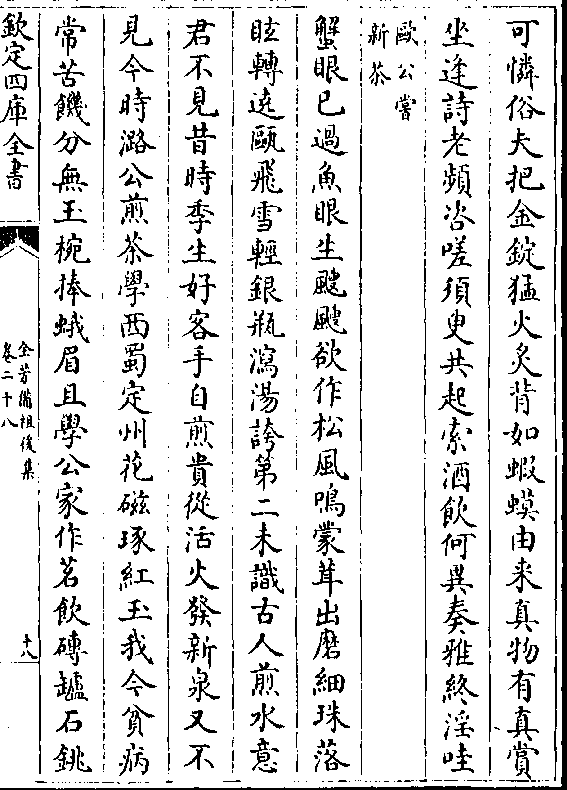 可憐俗夫把金錠猛火炙背如蝦蟆由来真物有真賞
坐逢詩老頻咨嗟須臾共起索酒飲何異奏雅終淫哇
歐公嘗
新茶
蟹眼已過魚眼生颼颼欲作松風鳴蒙茸出磨細珠落
眩轉遶甌飛雪輕銀瓶瀉湯誇第二未識古人煎水意
君不見昔時李生好客手自煎貴從活火發新泉又不
見今時潞公煎茶學西蜀定州花磁琢紅玉我今貧病
常苦饑分無玉椀捧蛾眉且學公家作茗飲磚罏石銚
欽定四庫全書
全芳備祖後集
卷二十八
十八